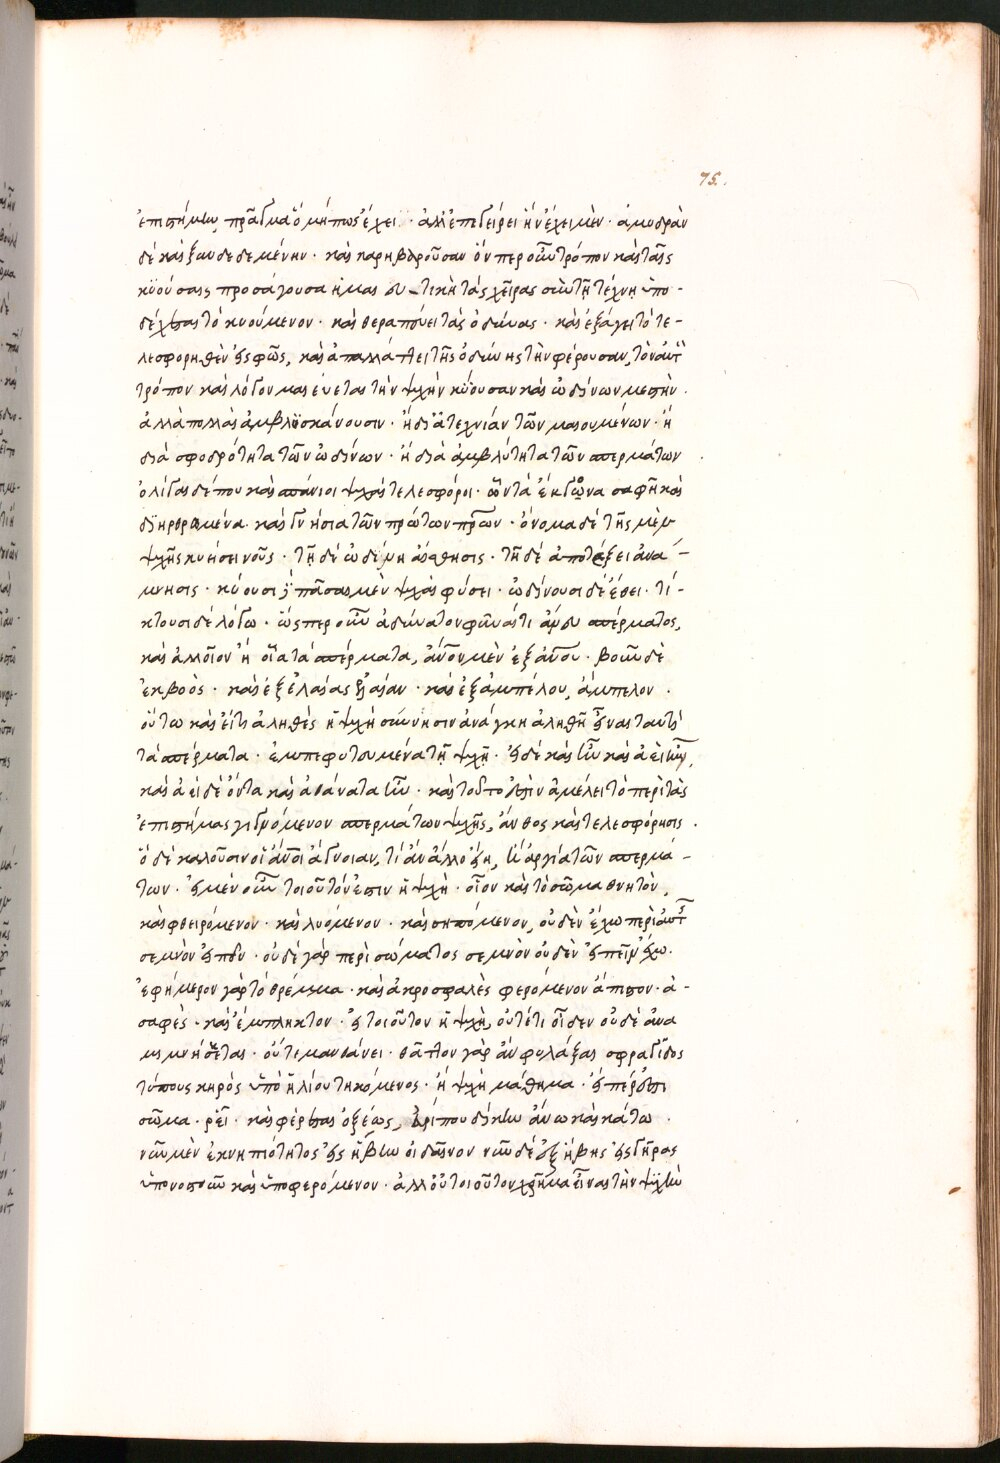 75.
ἐπιστήμην, πρᾶγμα ὃ μήπως ἔχει · ἀλλ' ἐπεγείρει ἣν ἔχει μὲν · ἀμυδρὰν
δὲ καὶ ξυνδεδεμένην · καὶ καρηβαροῦσαν ὅνπερ οὖν τρόπον καὶ ταῖς
κυούσαις προσάγουσα ἡ μαιευτικὴ τὰς χεῖρας σὺν τῇ τέχνῃ ὑπο-
δέχεται τὸ κυούμενον · καὶ θεραπεύει τὰς ὀδύνας · καὶ ἐξάγει τὸ τε-
λεσφορηθὲν εἰς φῶς, καὶ ἀπαλλάττει τῆς ὀδύνης τὴν φέρουσαν, τὸν αὐτὸν
τρόπον καὶ λόγον μαιεύεται τὴν ψυχὴν κύουσαν καὶ ὠδίνων μεστὴν ·
ἀλλὰ πολλαὶ ἀμβλυσκάνουσιν · ἢ δι' ἀτεχνίαν τῶν μαιουμένων · ἢ
διὰ σφοδρότητα τῶν ὠδίνων · ἢ διὰ ἀμβλύτητα τῶν σπερμάτων
ὀλίγαι δέ που καὶ σπάνιοι ψυχαὶ τελεσφόροι · ὧν τὰ ἔκγονα σαφῆ καὶ
διηρθρωμένα · καὶ γνήσια τῶν πρώτων πρων · ὄνομα δὲ τῆς μὲν
ψυχῆς κυήσει νοῦς · τῇ δὲ ὠδῖνι αἴσθησις · τῇ δὲ ἀποτέξει ἀνά-
μνησις · κύουσι πᾶσαι μὲν ψυχαὶ φύσει · ὠδίνουσι δὲ ἔθει · τί-
κτουσι δὲ λόγῳ · ὥσπερ οὖν ἀδύνατον φῦναί τι ἄνευ σπέρματος,
καὶ ἀλλοῖον ἢ οἷα τὰ σπέρματα, ἄνον μὲν ἐξ ἀνου · βοῦν δὲ
ἐκ βοὸς · καὶ ἐξ ἐλαίας ἐλαίαν · καὶ ἐξ ἀμπέλου, ἄμπελον ·
οὕτω καὶ εἴ τι ἀληθὲς ἡ ψυχὴ σύνησιν ἀνάγκη ἀληθῆ εἶναι ταυτὶ
τὰ σπέρματα · ἐμπεφυτουμένα τῇ ψυχῇ · εἰ δὲ καὶ ἦν καὶ ἀεὶ ἦν,
καὶ ἀεὶ δὲ ὄντα καὶ ἀθάνατα ἦν · καὶ τοῦτό ἐστιν ἀμέλει τὸ περὶ τὰς
ἐπιστήμας γιγνόμενον σπερμάτων ψυχῆς, ἄνθος καὶ τελεσφόρησις ·
ὃ δὲ καλοῦσιν οἱ ἄνοι ἄγνοιαν, τί ἂν ἄλλο εἴη, ἢ ἀργία τῶν σπερμά-
των · εἰ μὲν οὖν τοιοῦτόν ἐστιν ἡ ψυχὴ · οἷον καὶ τὸ σῶμα θνητὸν,
καὶ φθειρόμενον · καὶ λυόμενον · καὶ σηπόμενον, οὐδὲν ἔχω περὶ αὐτῆς
σεμνὸν εἰπεῖν · οὐδὲ γὰρ περὶ σώματος σεμνὸν οὐδὲν εἰπεῖν ἔχω ·
ἐφήμερον γὰρ τὸ θρέμμα · καὶ ἀκροσφαλὲς φερόμενον ἄπιστον · ἀ-
σαφὲς · καὶ ἔμπληκτον · εἰ τοιοῦτον ἡ ψυχὴ, οὔτέ τι οἶδεν οὐδὲ ἀνα
μιμνήσεται · οὔτε μανθάνει · θᾶττον γὰρ ἂν φυλάξαι σφραγῖδος
τύπους κηρὸς ὑπὸ ἡλίου τηκόμενος · ἢ ψυχὴ μάθημα · εἴπερ ἐστι
σῶμα · ῥεῖ · καὶ φέρεται ὀξέως, εὐρίπου δίκην ἄνω καὶ κάτω ·
νῦν μὲν ἐκ νηπιότητος εἰς ἥβην οἰδαῖνον νῦν δὲ ἐξ ἥβης εἰς γῆρας
ὑπονοστοῦν καὶ ὑποφερόμενον · ἀλλ' οὐ τοιοῦτον χρῆμα εἶναι τὴν ψυχὴν